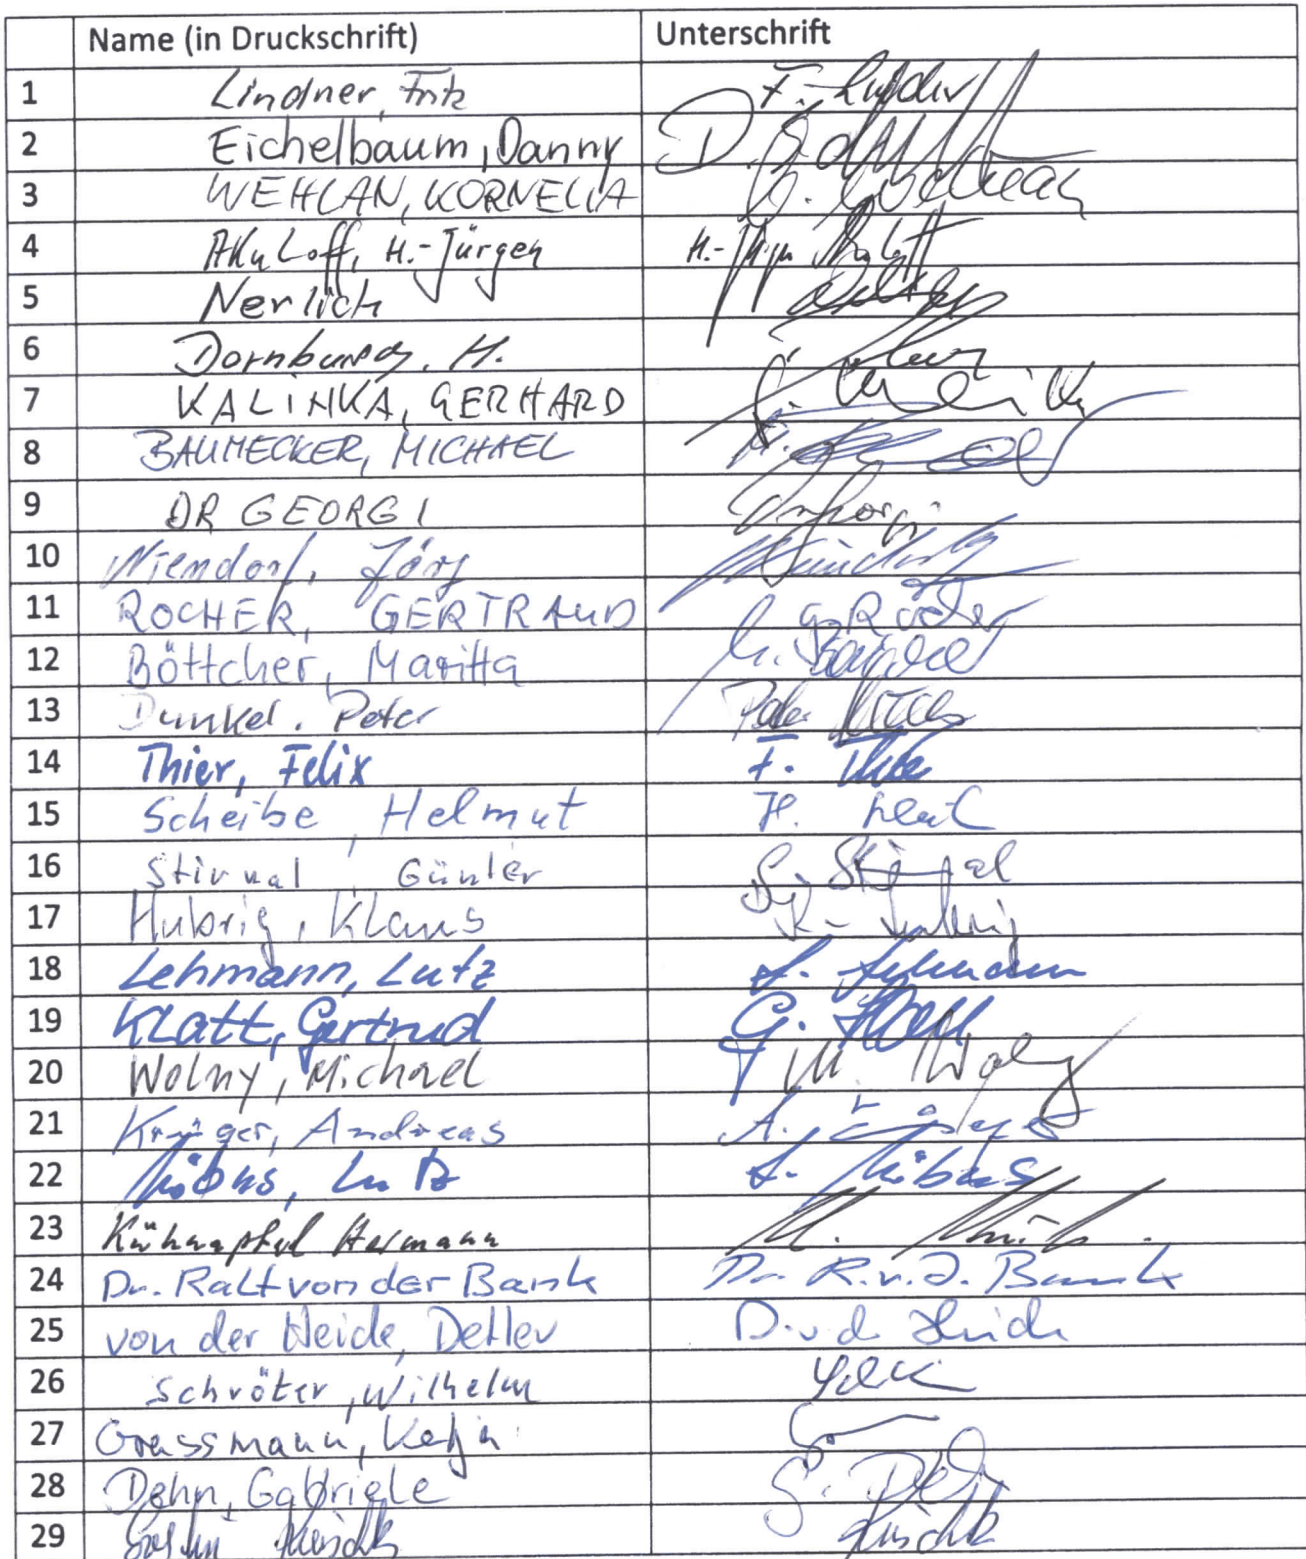 Name (in Druckschrift) Unterschrift
1 Lindner, Fritz F. Lindner
2 Eichelbaum, Danny D.
3 WEHLAN, KORNELIA K. Wehlan
4 H.-Jürgen H.-Jürgen
5 Nerlich
6 Dornbusch, H.
7 KALINKA, GERHARD G. Kalinka
8 BAUMECKER, MICHAEL
9 DR GEORGI Dr Georgi
10 Niendorf, Jörg Niendorf
11 ROCHER, GERTRAUD G. Rocher
12 Böttcher, Maritta M. Böttcher
13 Dunkel, Peter Peter
14 Thier, Felix F. Thier
15 Scheibe, Helmut H.
16 Stirnal, Günter G. Stirnal
17 Hubrig, Klaus K. Hubrig
18 Lehmann, Lutz L. Lehmann
19 Klatt, Gertrud G. Klatt
20 Wolny, Michael M. Wolny
21 Krüger, Andreas A. Krüger
22 Möbus, Lutz L. Möbus
23 Kühnapfel Hermann H.
24 Dr. Ralf von der Bank Dr. R. v. d. Bank
25 von der Heide, Detlev D. v. d. Heide
26 Schröter, Wilhelm
27 Grassmann, Katja
28 Dehn, Gabriele G. Dehn
29